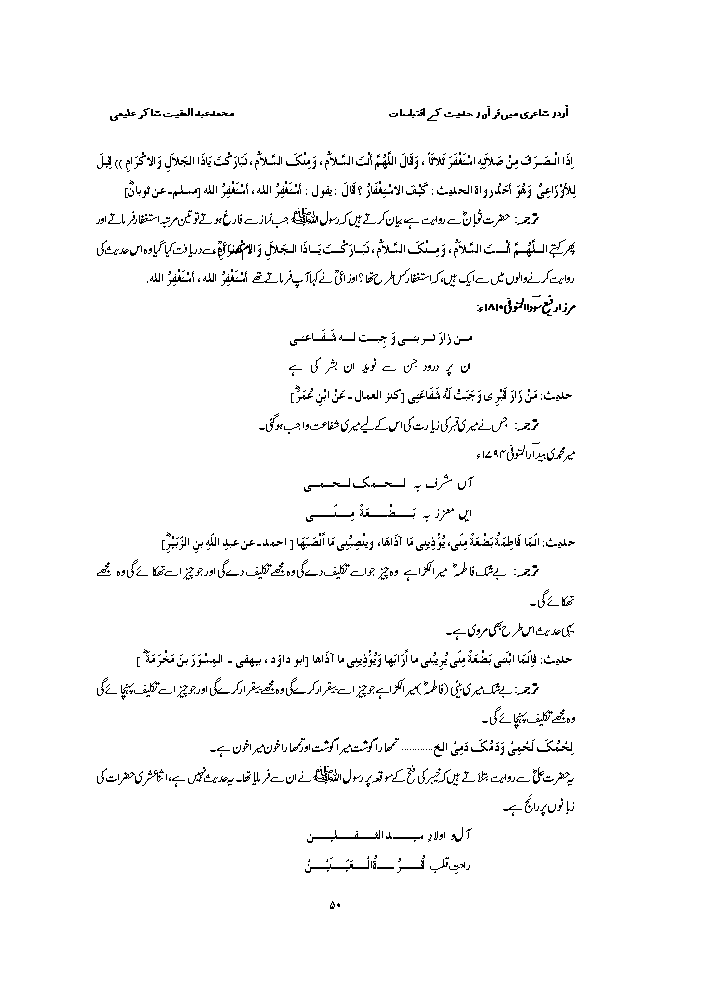 اُردو شاعری میں قرآن و حدیث کے اقتباسات محمد عبدالمقیت شاکر علیمی
اِذَا انْصَرَفَ مِنْ صَلَاتِهِ اسْتَغْفَرَ ثَلَاثاً ، وَقَالَ اللّٰهُمَّ أنْتَ السَّلَامُ ، وَمِنْکَ السَّلَامُ ، تَبَارَکْتَ یَاذَا الجَلَالِ وَالاکْرَامِ )) قِیلَ
لِلأوْزَاعِیُّ وَهُوَ أحَدُ رواة الحدیث : کَیْفَ الاسْتِغْفَارُ ؟ قَالَ : یقول : أسْتَغْفِرُ الله ، أسْتَغْفِرُ الله [مسلم۔ عن ثوبانؓ]
ترجمہ: حضرت ثوبانؓ سے روایت ہے، بیان کرتے ہیں کہ رسول اللہﷺ جب نماز سے فارغ ہوتے تو تین مرتبہ استغفار فرماتے اور
پھر کہتے اللّٰهُمَّ أنْتَ السَّلَامُ ، وَمِنْکَ السَّلَامُ ، تَبَارَکْتَ یَاذَا الجَلَالِ وَالاکْرَامِ سے دریافت کیا گیا وہ اس حدیث کی
روایت کرنے والوں میں سے ایک ہیں، کہ استغفار کس طرح تھا؟ اوزاعیؒ نے کہا آپ فرماتے تھے أسْتَغْفِرُ الله ، أسْتَغْفِرُ الله.
مرزا رفیع سوداؔ المتوفی ۱۸۱۰ء:
من زارَ تربتی وَ جبت لہ شَفَاعتی
ان پر درود جن سے نوید ان بشر کی ہے
حدیث: مَنْ زَارَ قَبْرِی وَجَبَتْ لَهُ شَفَاعَتِی [کنز العمال ۔ عَنْ ابْنِ عُمَرَؓ]
ترجمہ: جس نے میری قبر کی زیارت کی اس کے لیے میری شفاعت واجب ہوگئی۔
میر محمدی بیدارؔ المتوفی ۱۷۹۴ء
آں مشرف بہ لحمک لحمی
ایں معزز بہ بَضْعَةً مِنّی
حدیث: اِنَّمَا فَاطِمَةُ بَضْعَةٌ مِنِّی، یُؤْذِینِی مَا آذَاهَا، وَیُنْصِبُنِی مَا أنْصَبَهَا [ احمد۔ عن عبدِ اللّٰهِ بنِ الزُّبَیْرِؓ]
ترجمہ: بے شک فاطمہؓ میرا ٹکڑا ہے وہ چیز جو اسے تکلیف دے گی وہ مجھے تکلیف دے گی اور جو چیز اسے تھکائے گی وہ مجھے
تھکائے گی۔
یہی حدیث اس طرح بھی مروی ہے۔
حدیث: فَاِنَّمَا ابْنَتِی بَضْعَةٌ مِنِّی یُرِیْبُنِی مَا أرَابَهَا وَیُؤْذِینِی ما آذَاهَا [ابو داؤد ، بیهقی ۔ المِسْوَرَ بنَ مَخْرَمَةَؓ ]
ترجمہ: بے شک میری بیٹی (فاطمہؓ) میرا ٹکڑا ہے جو چیز اسے بیقرار کرے گی وہ مجھے بیقرار کرے گی اور جو چیز اسے تکلیف پہنچائے گی
وہ مجھے تکلیف پہنچائے گی۔
لَحْمُکَ لَحْمِیْ وَدَمُکَ دَمِیْ الخ............ تمھارا گوشت میرا گوشت اور تمھارا خون میرا خون ہے۔
یہ حضرت علیؓ سے روایت بتلاتے ہیں کہ خیبر کی فتح کے موقعہ پر رسول اللہﷺ نے ان سے فرمایا تھا۔ یہ حدیث نہیں ہے، اثنا عشری حضرات کی
زبانوں پر رائج ہے۔
آل و اولادِ سید الثقلین
راحتِ قلب قُرَّةُ الْعَیْنَیْنُ
۵۰